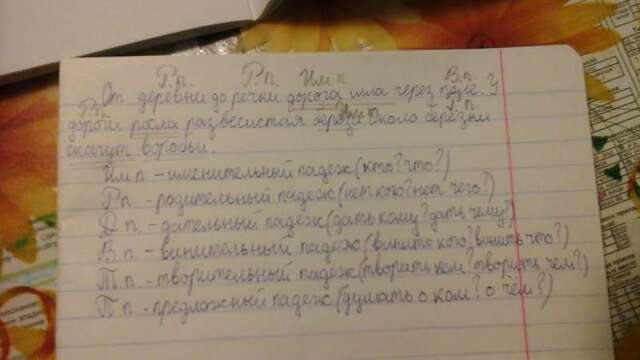 Р.п. Р.п. Им п В.п.
От деревни до речки дорога шла через поле. У
Р.п. Им п Р.п
дороги росла развесистая берёза. Около берёзки
скачут воробьи.
Им п - именительный падеж (кто? что?)
Р п. - родительный падеж (нет кого? нет чего?)
Д п. - дательный падеж (дать кому? дать чему?)
В п. - винительный падеж (винить кого? винить что?)
Т п. - творительный падеж (творить кем? творить чем?)
П п. - предложный падеж (думать о ком? о чём?)